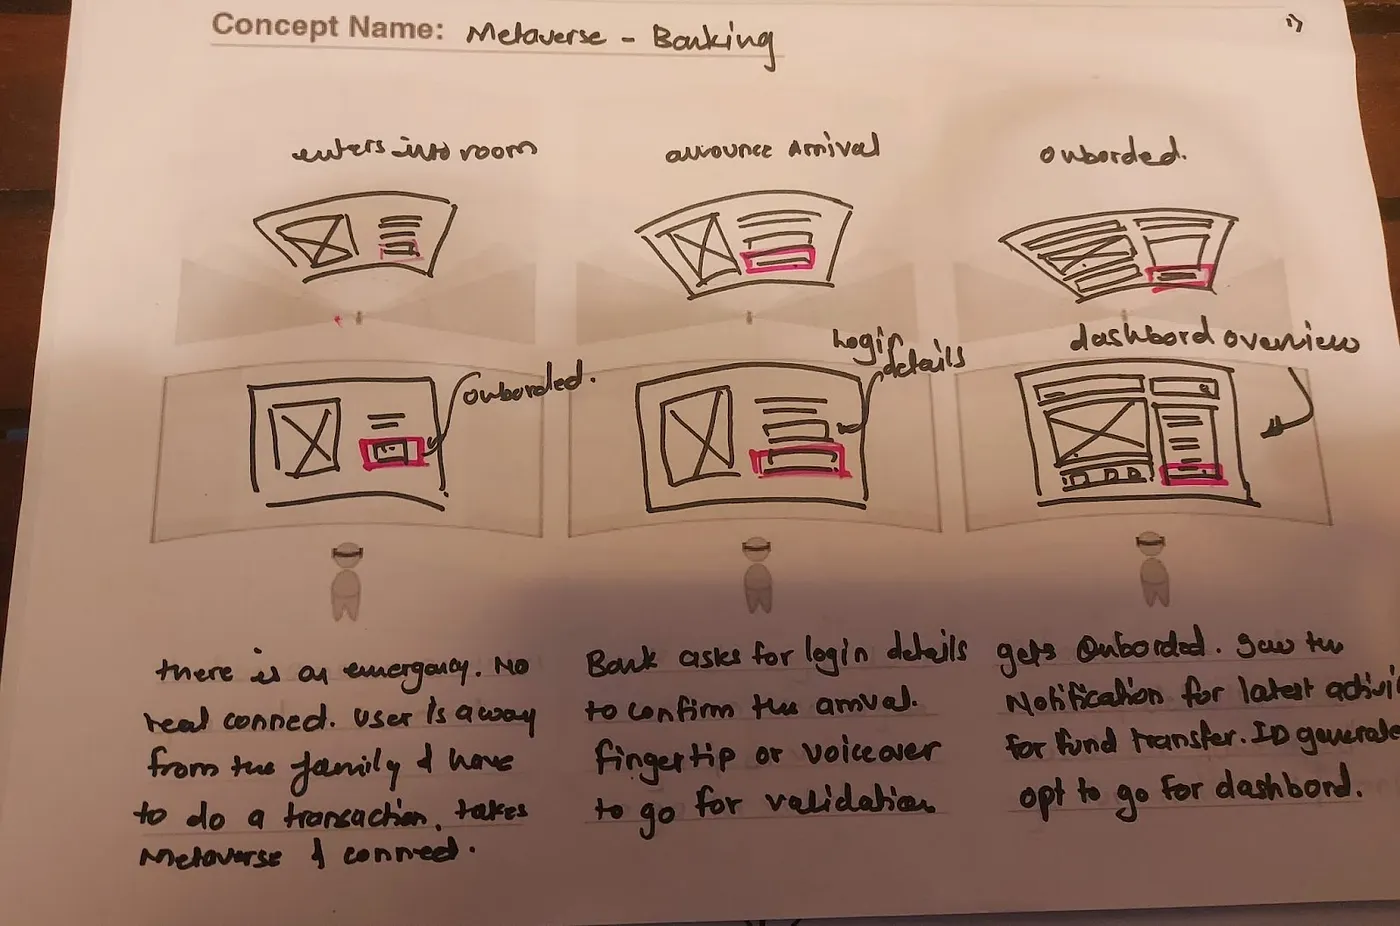 Concept Name: Metaverse - Banking
1)
enters into room
announce Arrival
Onborded.
Onborded.
Login
details
dashbord overview
there is an emergency. No
real conned. User is away
from the family & have
to do a transaction, takes
Metaverse & conned.
Bank asks for login details
to confirm the arrival.
fingertip or voiceover
to go for validation
gets Onborded. Saw the
Notification for latest activi
for fund transfer. ID generate
opt to go for dashbord.